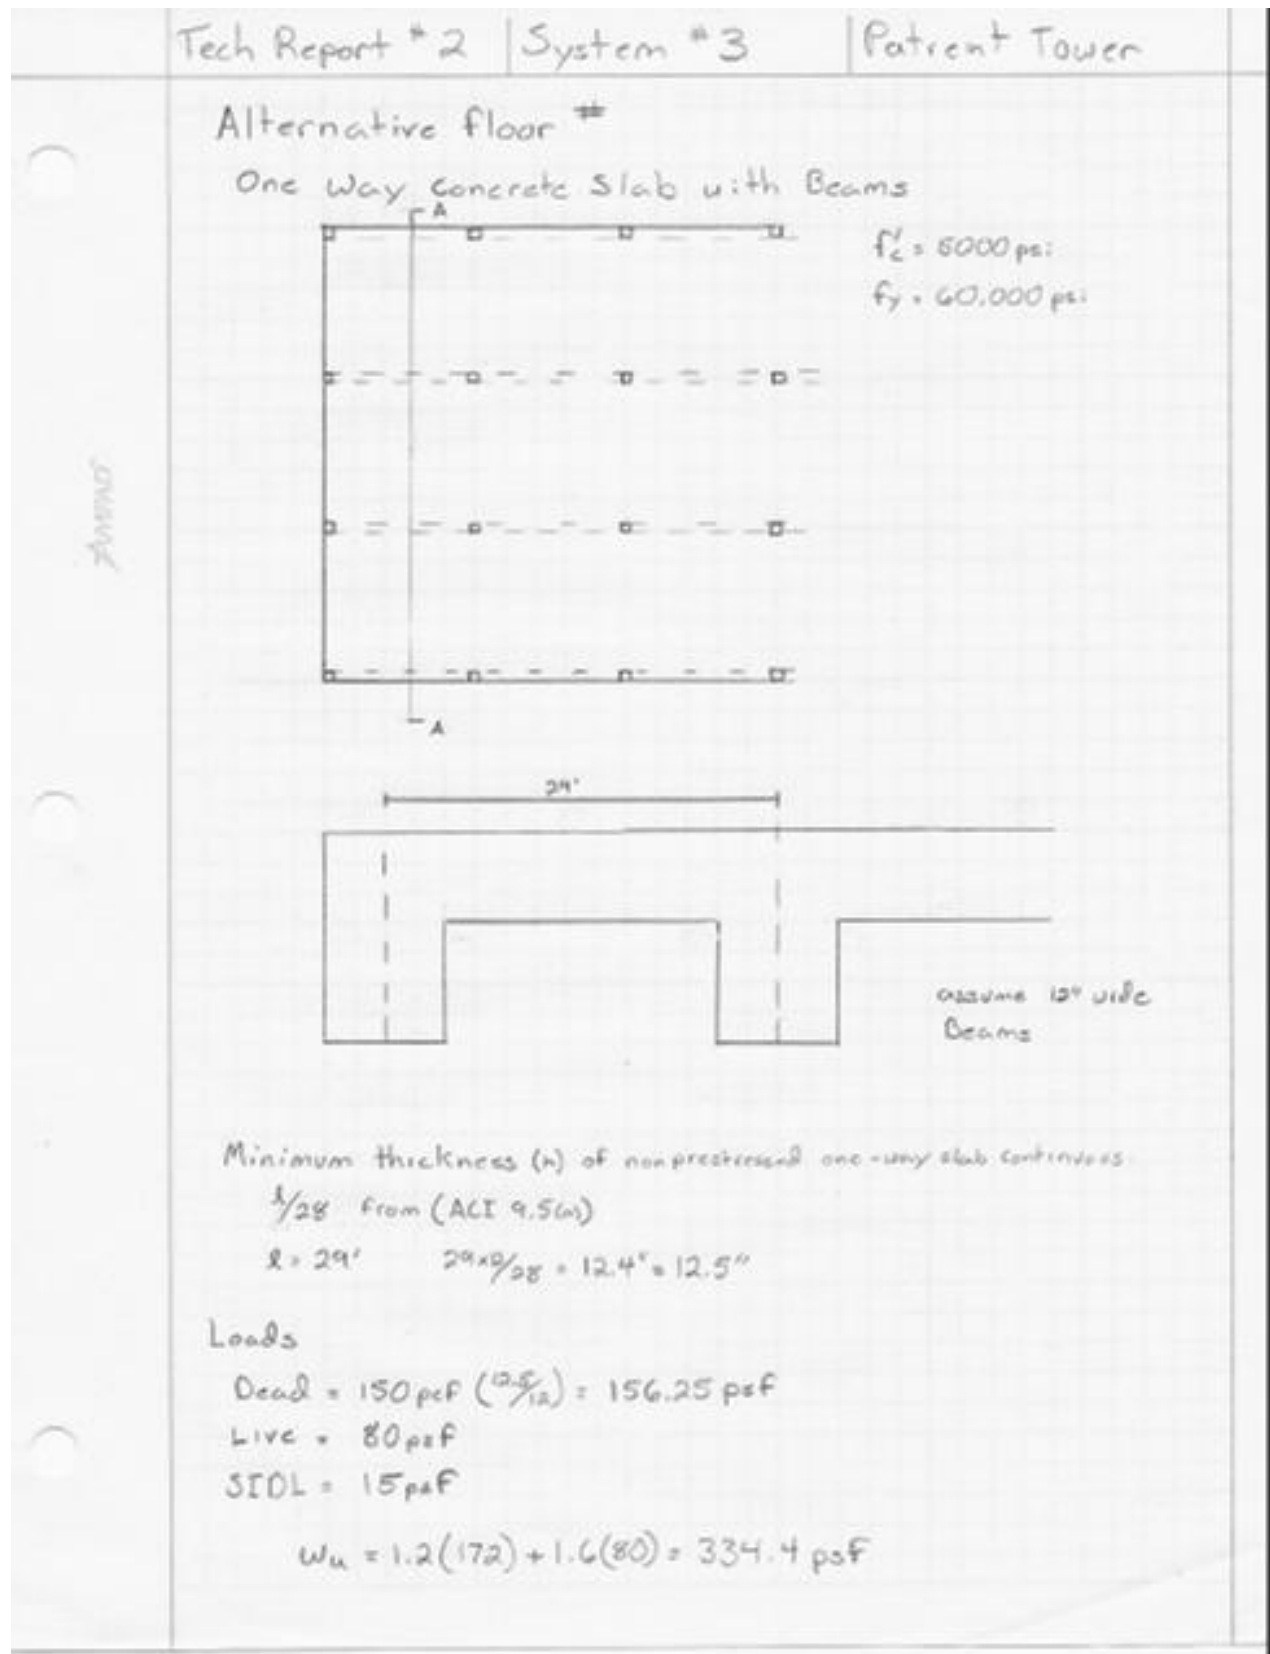 Tech Report #2 | System #3 | Patient Tower
Alternative floor #
One Way Concrete Slab with Beams
A
f'c = 5000 psi
fy = 60,000 psi
A
29'
assume 12" wide
Beams
Minimum thickness (h) of nonprestressed one-way slab continuous
l/28 from (ACI 9.5(a))
l = 29' 29x12/28 = 12.4" = 12.5"
Loads
Dead = 150 pcf (12.5/12) = 156.25 psf
Live = 80 psf
SIDL = 15 psf
Wu = 1.2(172) + 1.6(80) = 334.4 psf